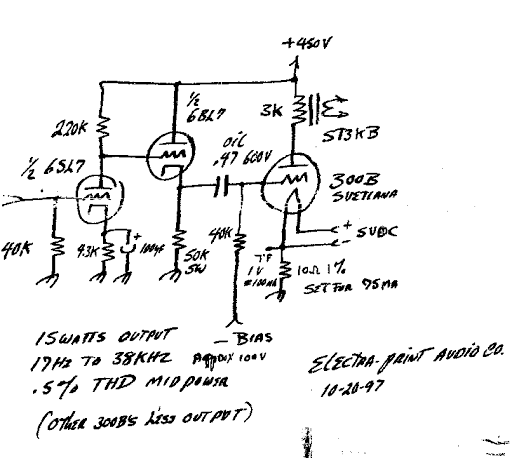 +450V
220K
1/2
6BL7
3K
ST3KB
OIL
.47 600V
1/2 6SL7
300B
SVETLANA
+
5VDC
-
40K
4.3K
+
100µf
50K
5W
40K
TP
1V
=100MA
10Ω 1%
SET FOR 75MA
- BIAS
APPROX 100V
15 WATTS OUTPUT
17HZ TO 38KHZ
.5% THD MIDPOWER
(OTHER 300B'S LESS OUTPUT)
ELECTRA-PRINT AUDIO CO.
10-20-97